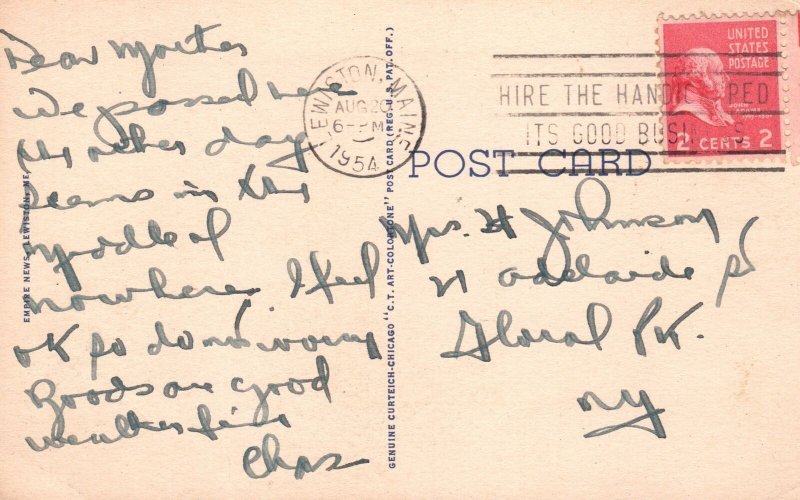 Dear Mother
We passed here
the other day
seams in the
middle of
nowhere, I feel
OK so don't worry
Roads are good
weather fine
Chas
EMPIRE NEWS, LEWISTON, ME.
GENUINE CURTEICH-CHICAGO "C.T. ART-COLORTONE" POST CARD (REG. U.S. PAT. OFF.)
LEWISTON, MAINE
AUG 20
6-PM
1954
HIRE THE HANDICAPPED
ITS GOOD BUSINESS
UNITED
STATES
POSTAGE
JOHN ADAMS
2 CENTS 2
POST CARD
Mrs. H Johnson
21 Adelaide
Floral Pk.
NY